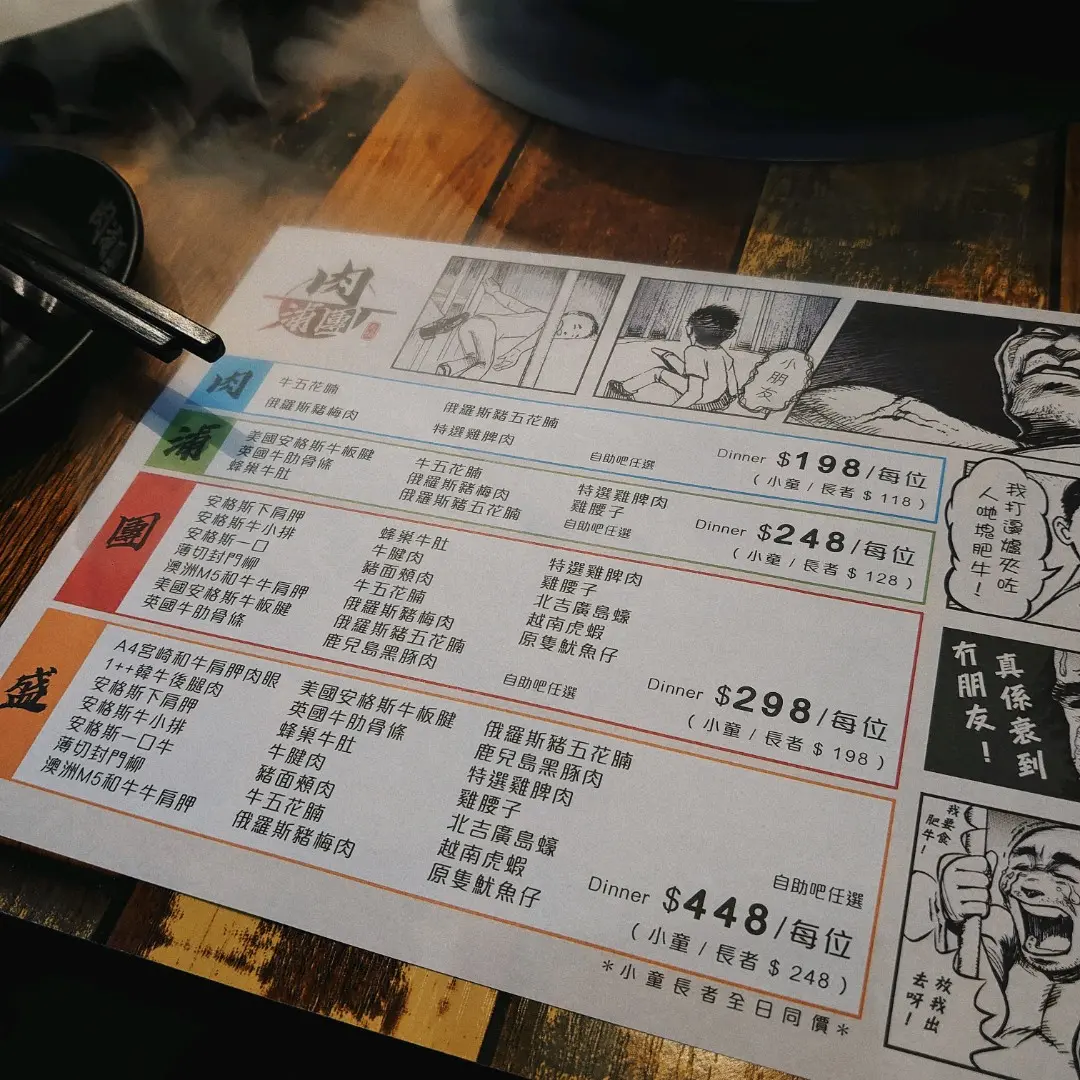 肉
蒲團
小朋友
肉
牛五花腩
俄羅斯豬梅肉
俄羅斯豬五花腩
特選雞髀肉
自助吧任選
Dinner $198/每位
(小童/長者$118)
蒲
美國安格斯牛板腱
英國牛肋骨條
蜂巢牛肚
牛五花腩
俄羅斯豬梅肉
俄羅斯豬五花腩
特選雞髀肉
雞腰子
自助吧任選
Dinner $248/每位
(小童/長者$128)
團
安格斯下肩胛
安格斯牛小排
安格斯一口
薄切封門柳
澳洲M5和牛牛肩胛
美國安格斯牛板腱
英國牛肋骨條
蜂巢牛肚
牛腱肉
豬面頰肉
牛五花腩
俄羅斯豬梅肉
俄羅斯豬五花腩
鹿兒島黑豚肉
特選雞髀肉
雞腰子
北吉廣島蠔
越南虎蝦
原隻魷魚仔
自助吧任選
Dinner $298/每位
(小童/長者$198)
盛
A4宮崎和牛肩胛肉眼
1++韓牛後腿肉
安格斯下肩胛
安格斯牛小排
安格斯一口牛
薄切封門柳
澳洲M5和牛牛肩胛
美國安格斯牛板腱
英國牛肋骨條
蜂巢牛肚
牛腱肉
豬面頰肉
牛五花腩
俄羅斯豬梅肉
俄羅斯豬五花腩
鹿兒島黑豚肉
特選雞髀肉
雞腰子
北吉廣島蠔
越南虎蝦
原隻魷魚仔
自助吧任選
Dinner $448/每位
(小童/長者$248)
*小童長者全日同價*
我打邊爐夾咗
人哋塊肥牛！
真係衰到
冇朋友！
我要食
肥牛！
放我出
去呀！